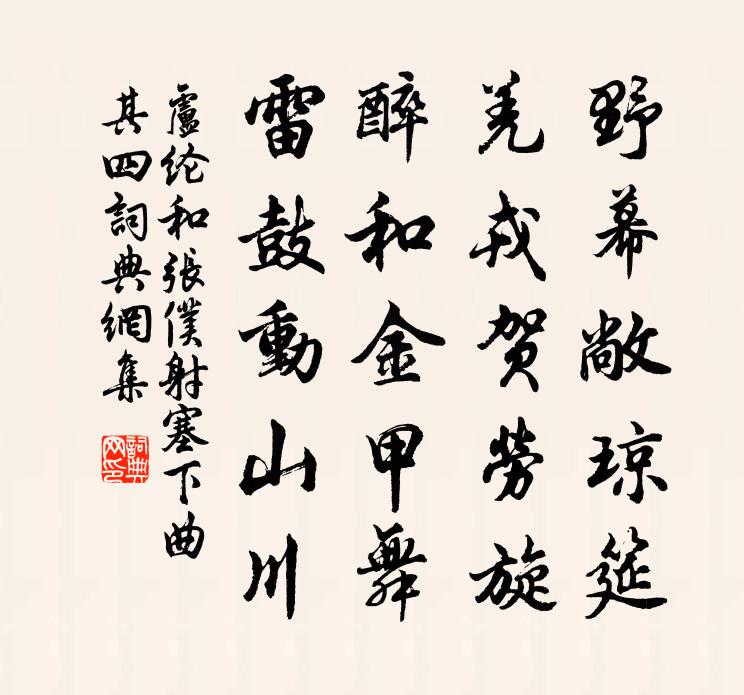 野幕敞琼筵
羌戎贺勞旋
醉和金甲舞
雷鼓動山川
盧纶和張僕射塞下曲
其四詞典網集
詞典网印